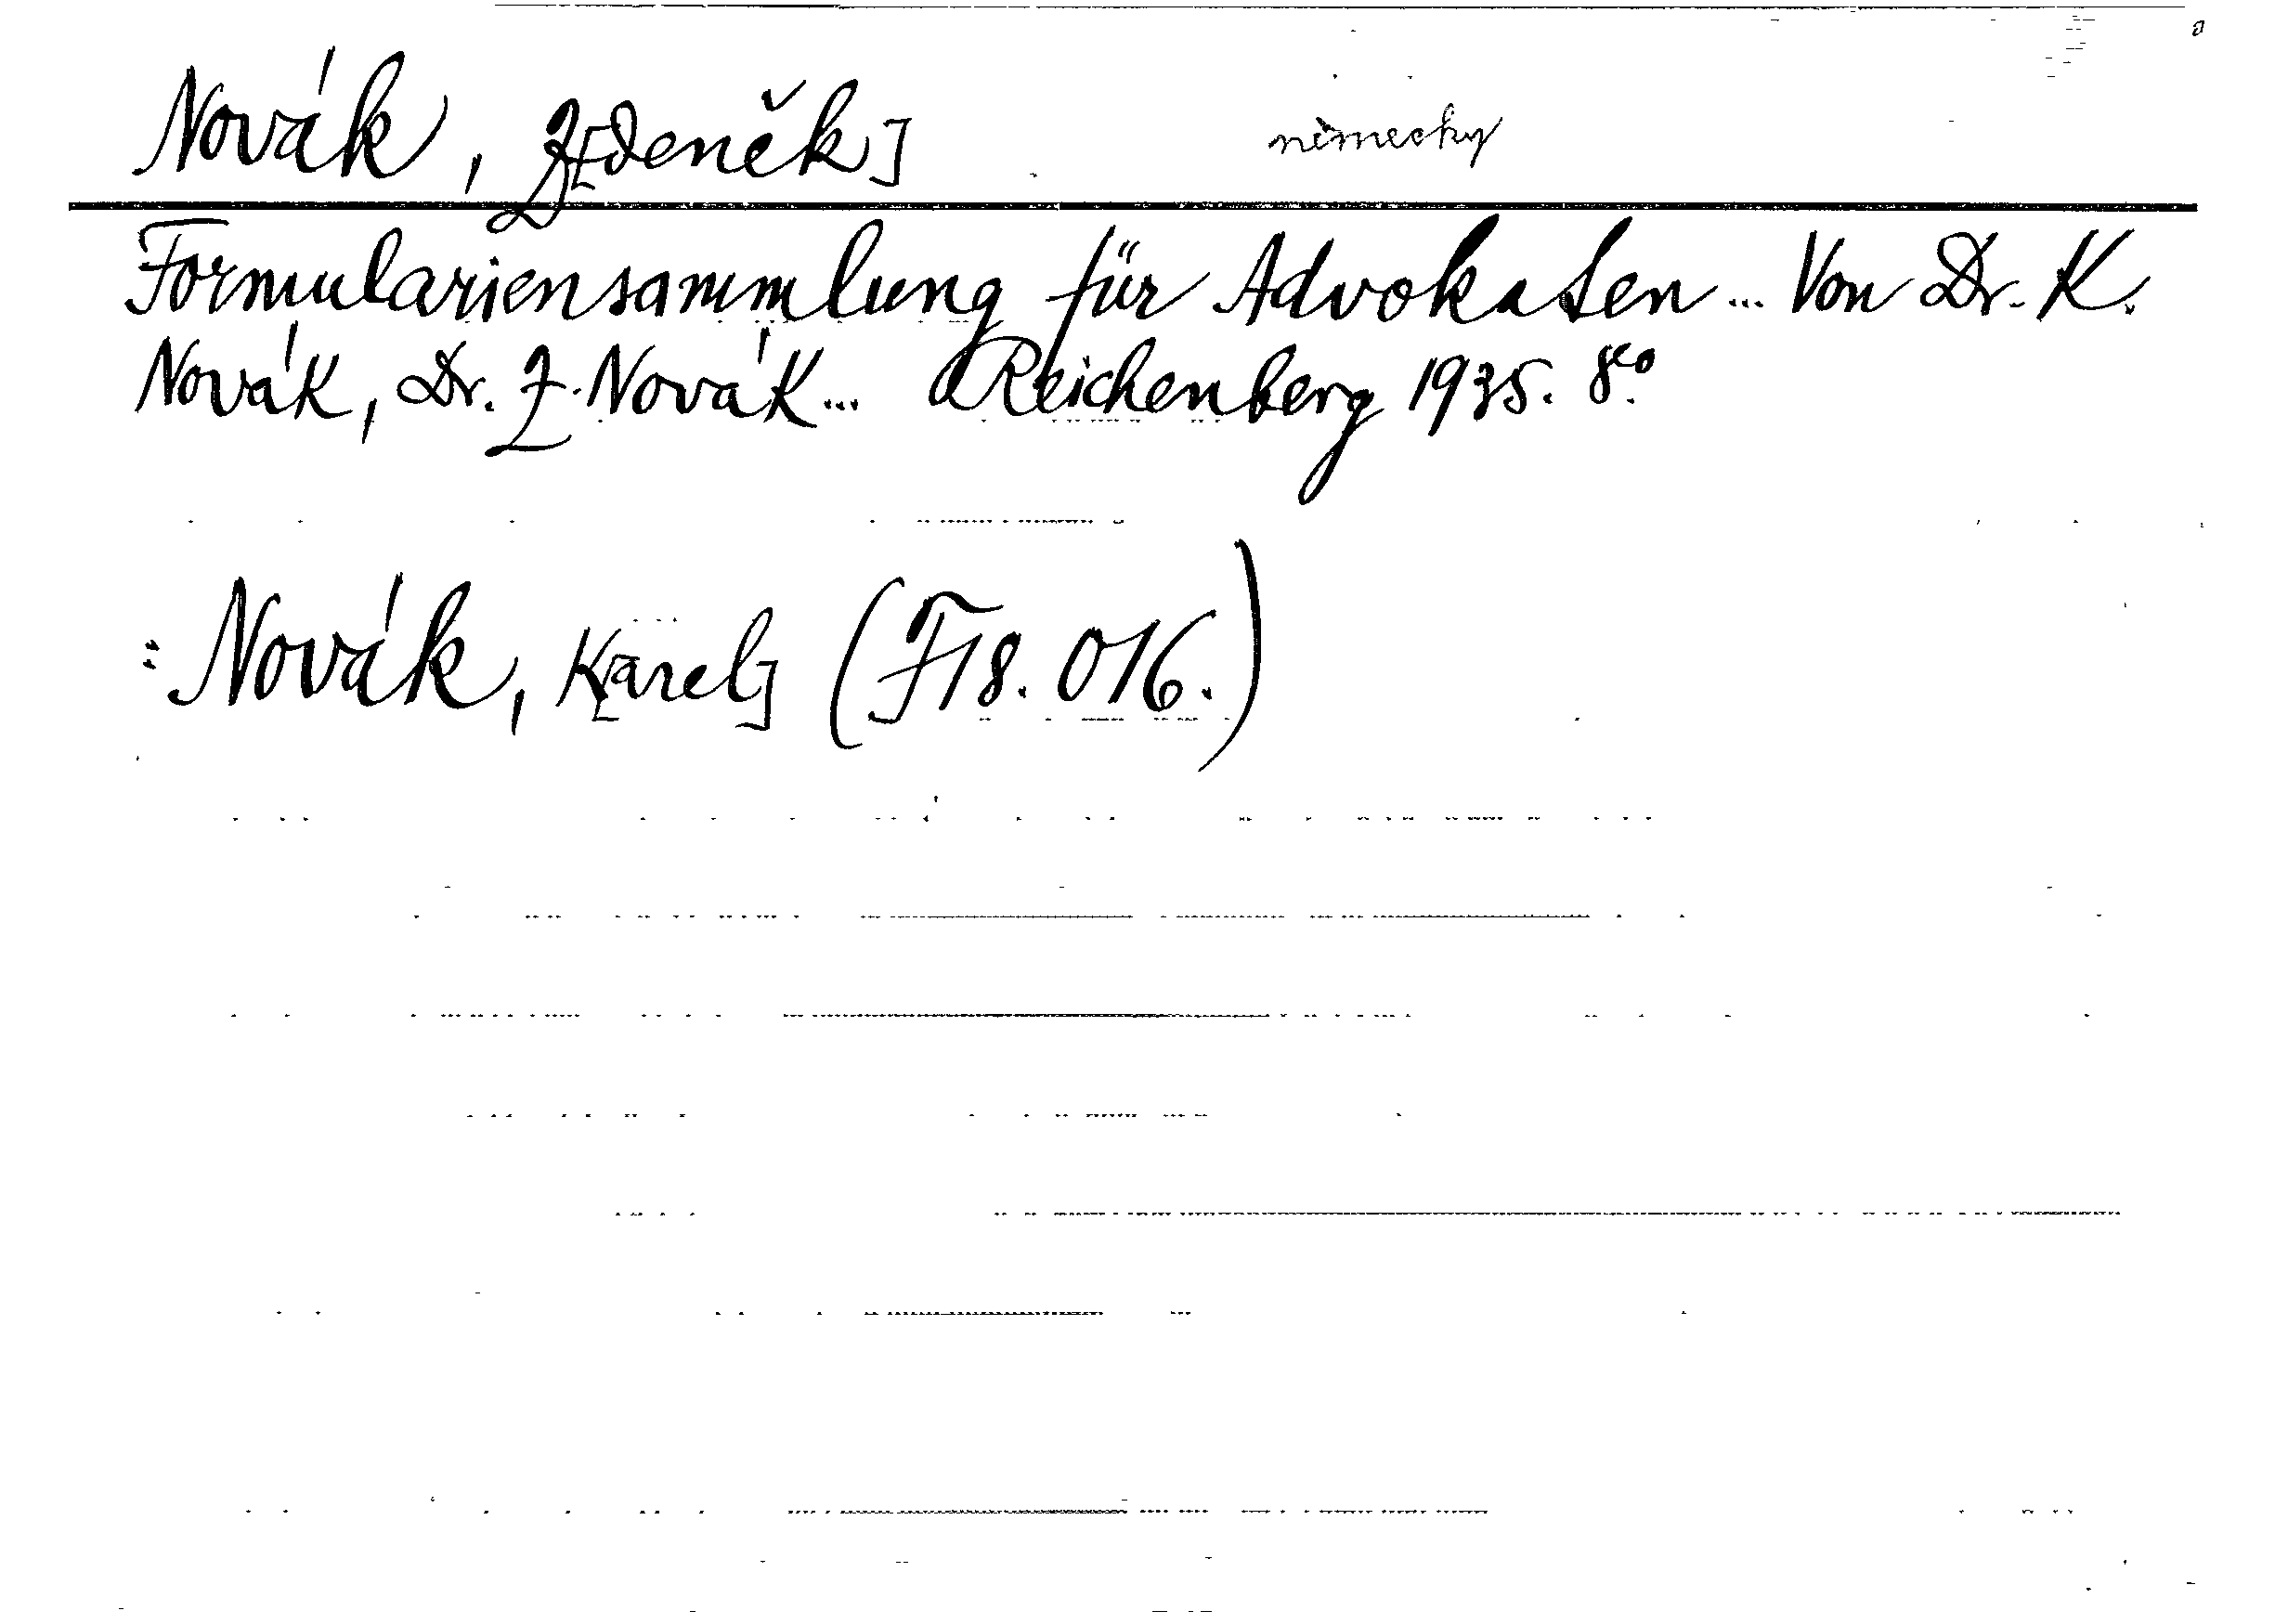 Novák, Z[deněk] německy
Formulariensammlung für Advokaten ... Von Dr. K.
Novák, Dr. Z. Novák ... Reichenberg 1935. 8°.
: Novák, K[arel] (F 18. 016.)